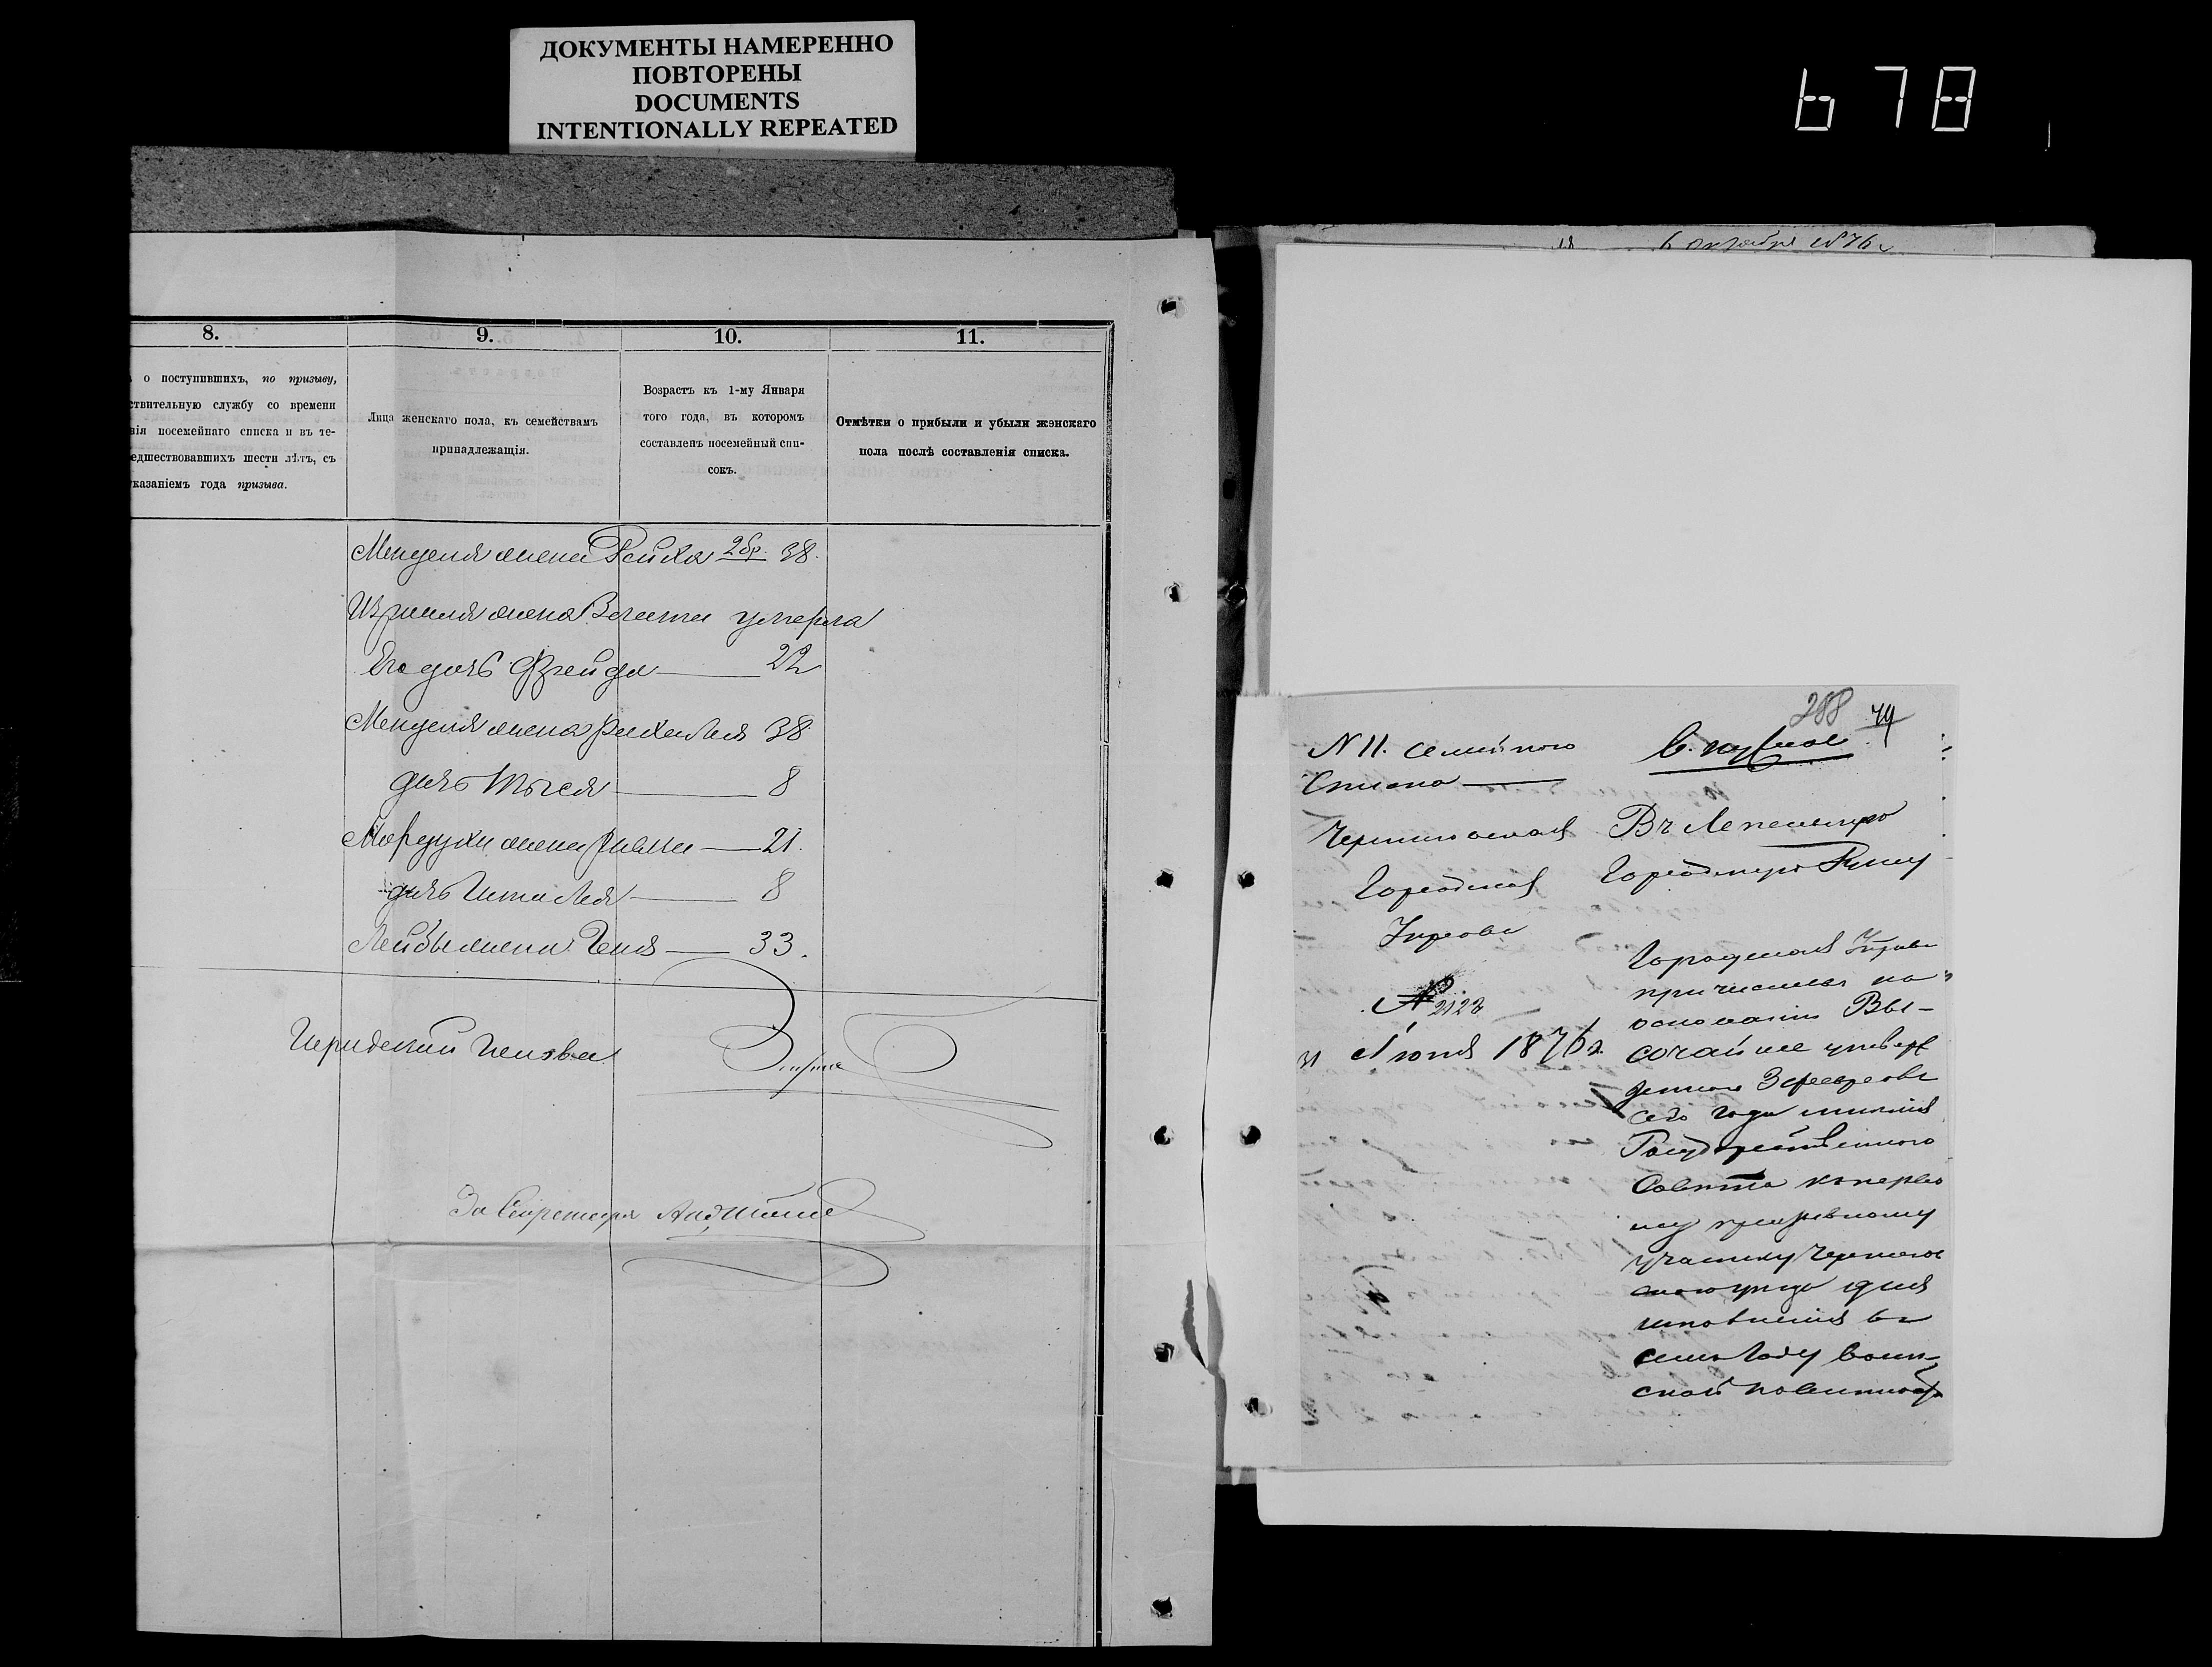 ДОКУМЕНТЫ НАМЕРЕННО
ПОВТОРЕНЫ
DOCUMENTS
INTENTIONALLY REPEATED
678
6 октября 1876 г
8.
9.
10.
11.
о поступившихъ, по призыву,
ствительную службу со времени
нія посемейнаго списка и въ те-
едшествовавшихъ шести лѣтъ, съ
казаніемъ года призыва.
Лица женскаго пола, къ семействамъ
принадлежащія.
Возрастъ къ 1-му Января
того года, въ которомъ
составленъ посемейный спи-
сокъ.
Отмѣтки о прибыли и убыли женскаго
пола послѣ составленія списка.
Менделя жена Рейха 2 бр. 38.
Израиля жена умерла
Его дочь Фрейда 22
Менделя жена 38
дочь 8
Мордухи жена 21.
дочь 8
Лейбы жена Геня 33.
За Секретаря
288 79
N 11. семейного
Списка
Черниговская
Городская
Управа
№ 2123
31 Июля 1876 г.
Въ Лепельскую
Городскую Думу
Городская Управа
причислена на
основаніи Вы-
сочайше утверж
деннаго 3 февраля
сего года мнѣнія
Государственнаго
Совѣта къ перво
му призывному
участку Чернигов
скаго уѣзда для
исполненія въ
семъ году воин-
ской повинности